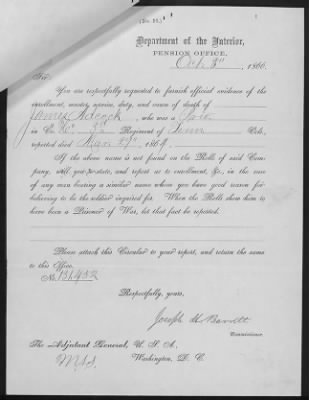 (No. 10.)
Department of the Interior,
PENSION OFFICE,
Oct. 3d, 1866.
Sir:
You are respectfully requested to furnish official evidence of the
enrollment, muster, service, duty, and cause of death of
James Adcock, who was a
in Co. 3d Regiment of Tenn Vols,
reported died 1864.
If the above name is not found on the Rolls of said Com-
pany, will you so state, and report as to enrollment, &c., in the case
of any man bearing a similar name whom you have good reason for
believing to be the soldier inquired for. When the Rolls show them to
have been a Prisoner of War, let that fact be reported.
Please attach this Circular to your report, and return the same
to this Office.
No. 131,452
Respectfully, yours,
Joseph H. Barrett
Commissioner.
The Adjutant General, U. S. A.,
Washington, D. C.